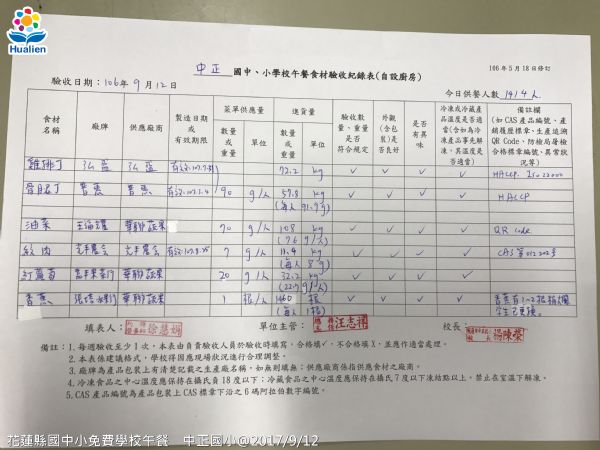 Hualien
106年5月18日修訂
中正 國中、小學校午餐食材驗收紀錄表(自設廚房)
驗收日期：106年9月12日
今日供餐人數 1414人
食材名稱 廠牌 供應廠商 製造日期或有效期限 菜單供應量 進貨量 驗收數量、重量是否符合規定 外觀(含包裝)是否良好 是否有異味 冷凍或冷藏產品溫度是否適當(含如為冷凍產品事先解凍，其溫度是否適當) 備註欄(如CAS產品編號、產銷履歷標章、生產追溯QR Code、防檢局屠檢合格標章編號、異常狀況等)
數量或重量 單位 數量或重量 單位
雞排丁 弘益 弘益 72.2 kg ✓ ✓ ✓ ✓ HACCP ISO22000
骨腿丁 普惠 普惠 90 g/人 57.8 kg ✓ ✓ ✓ ✓ HACCP
(每人91.9g)
油菜 華聯蔬果 70 g/人 108 kg ✓ ✓ ✓ QR code
(76g/人)
絞肉 7 g/人 11.4 kg ✓ ✓ ✓ ✓ CAS第012202号
(每人8g)
紅蘿蔔 華聯蔬果 20 g/人 32.2 kg ✓ ✓ ✓
(22.7g/人)
香蕉 華聯蔬果 1 根/人 1460 根 ✓ ✓ ✓
(每人1根)
填表人： 徐慧娟 單位主管： 汪志祥 校長： 楊陳榮
備註：1.每週驗收至少1次，本表由自負責驗收人員於驗收時填寫，合格填✓，不合格填X，並應作適當處理。
2.本表係建議格式，學校得因應現場狀況進行合理調整。
3.廠牌為產品包裝上有清楚記載之生產廠名稱，如無則填無；供應廠商係指供應食材之廠商。
4.冷凍食品之中心溫度應保持在攝氏負18度以下；冷藏食品之中心溫度應保持在攝氏7度以下凍結點以上，禁止在室溫下解凍。
5.CAS產品編號為產品包裝上CAS標章下沿之6碼阿拉伯數字編號。
花蓮縣國中小免費學校午餐 中正國小@2017/9/12